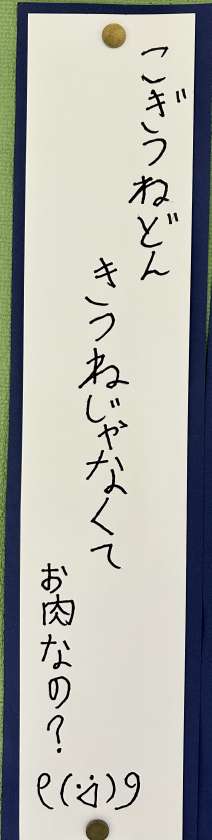 こぎつねどん
きつねじゃなくて
お肉なの？
ρ(·ڼ)9